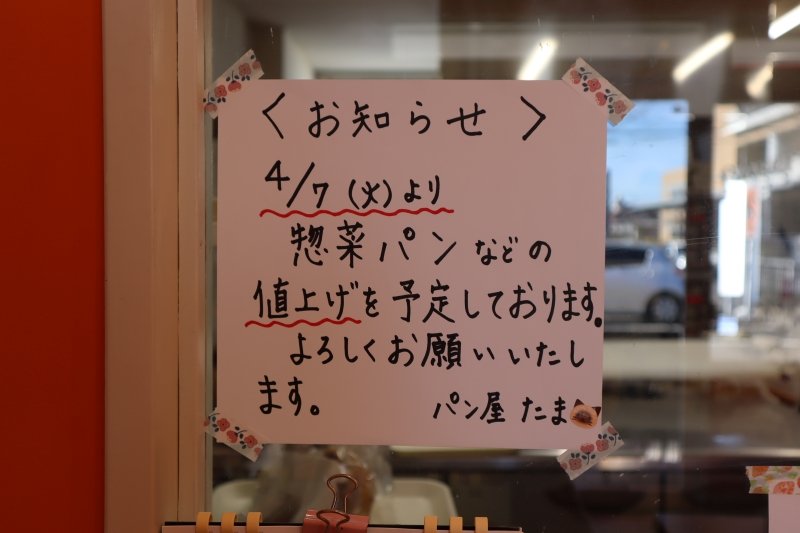 〈お知らせ〉
4/7(火)より
惣菜パンなどの
値上げを予定しております。
よろしくお願いいたし
ます。 パン屋たま